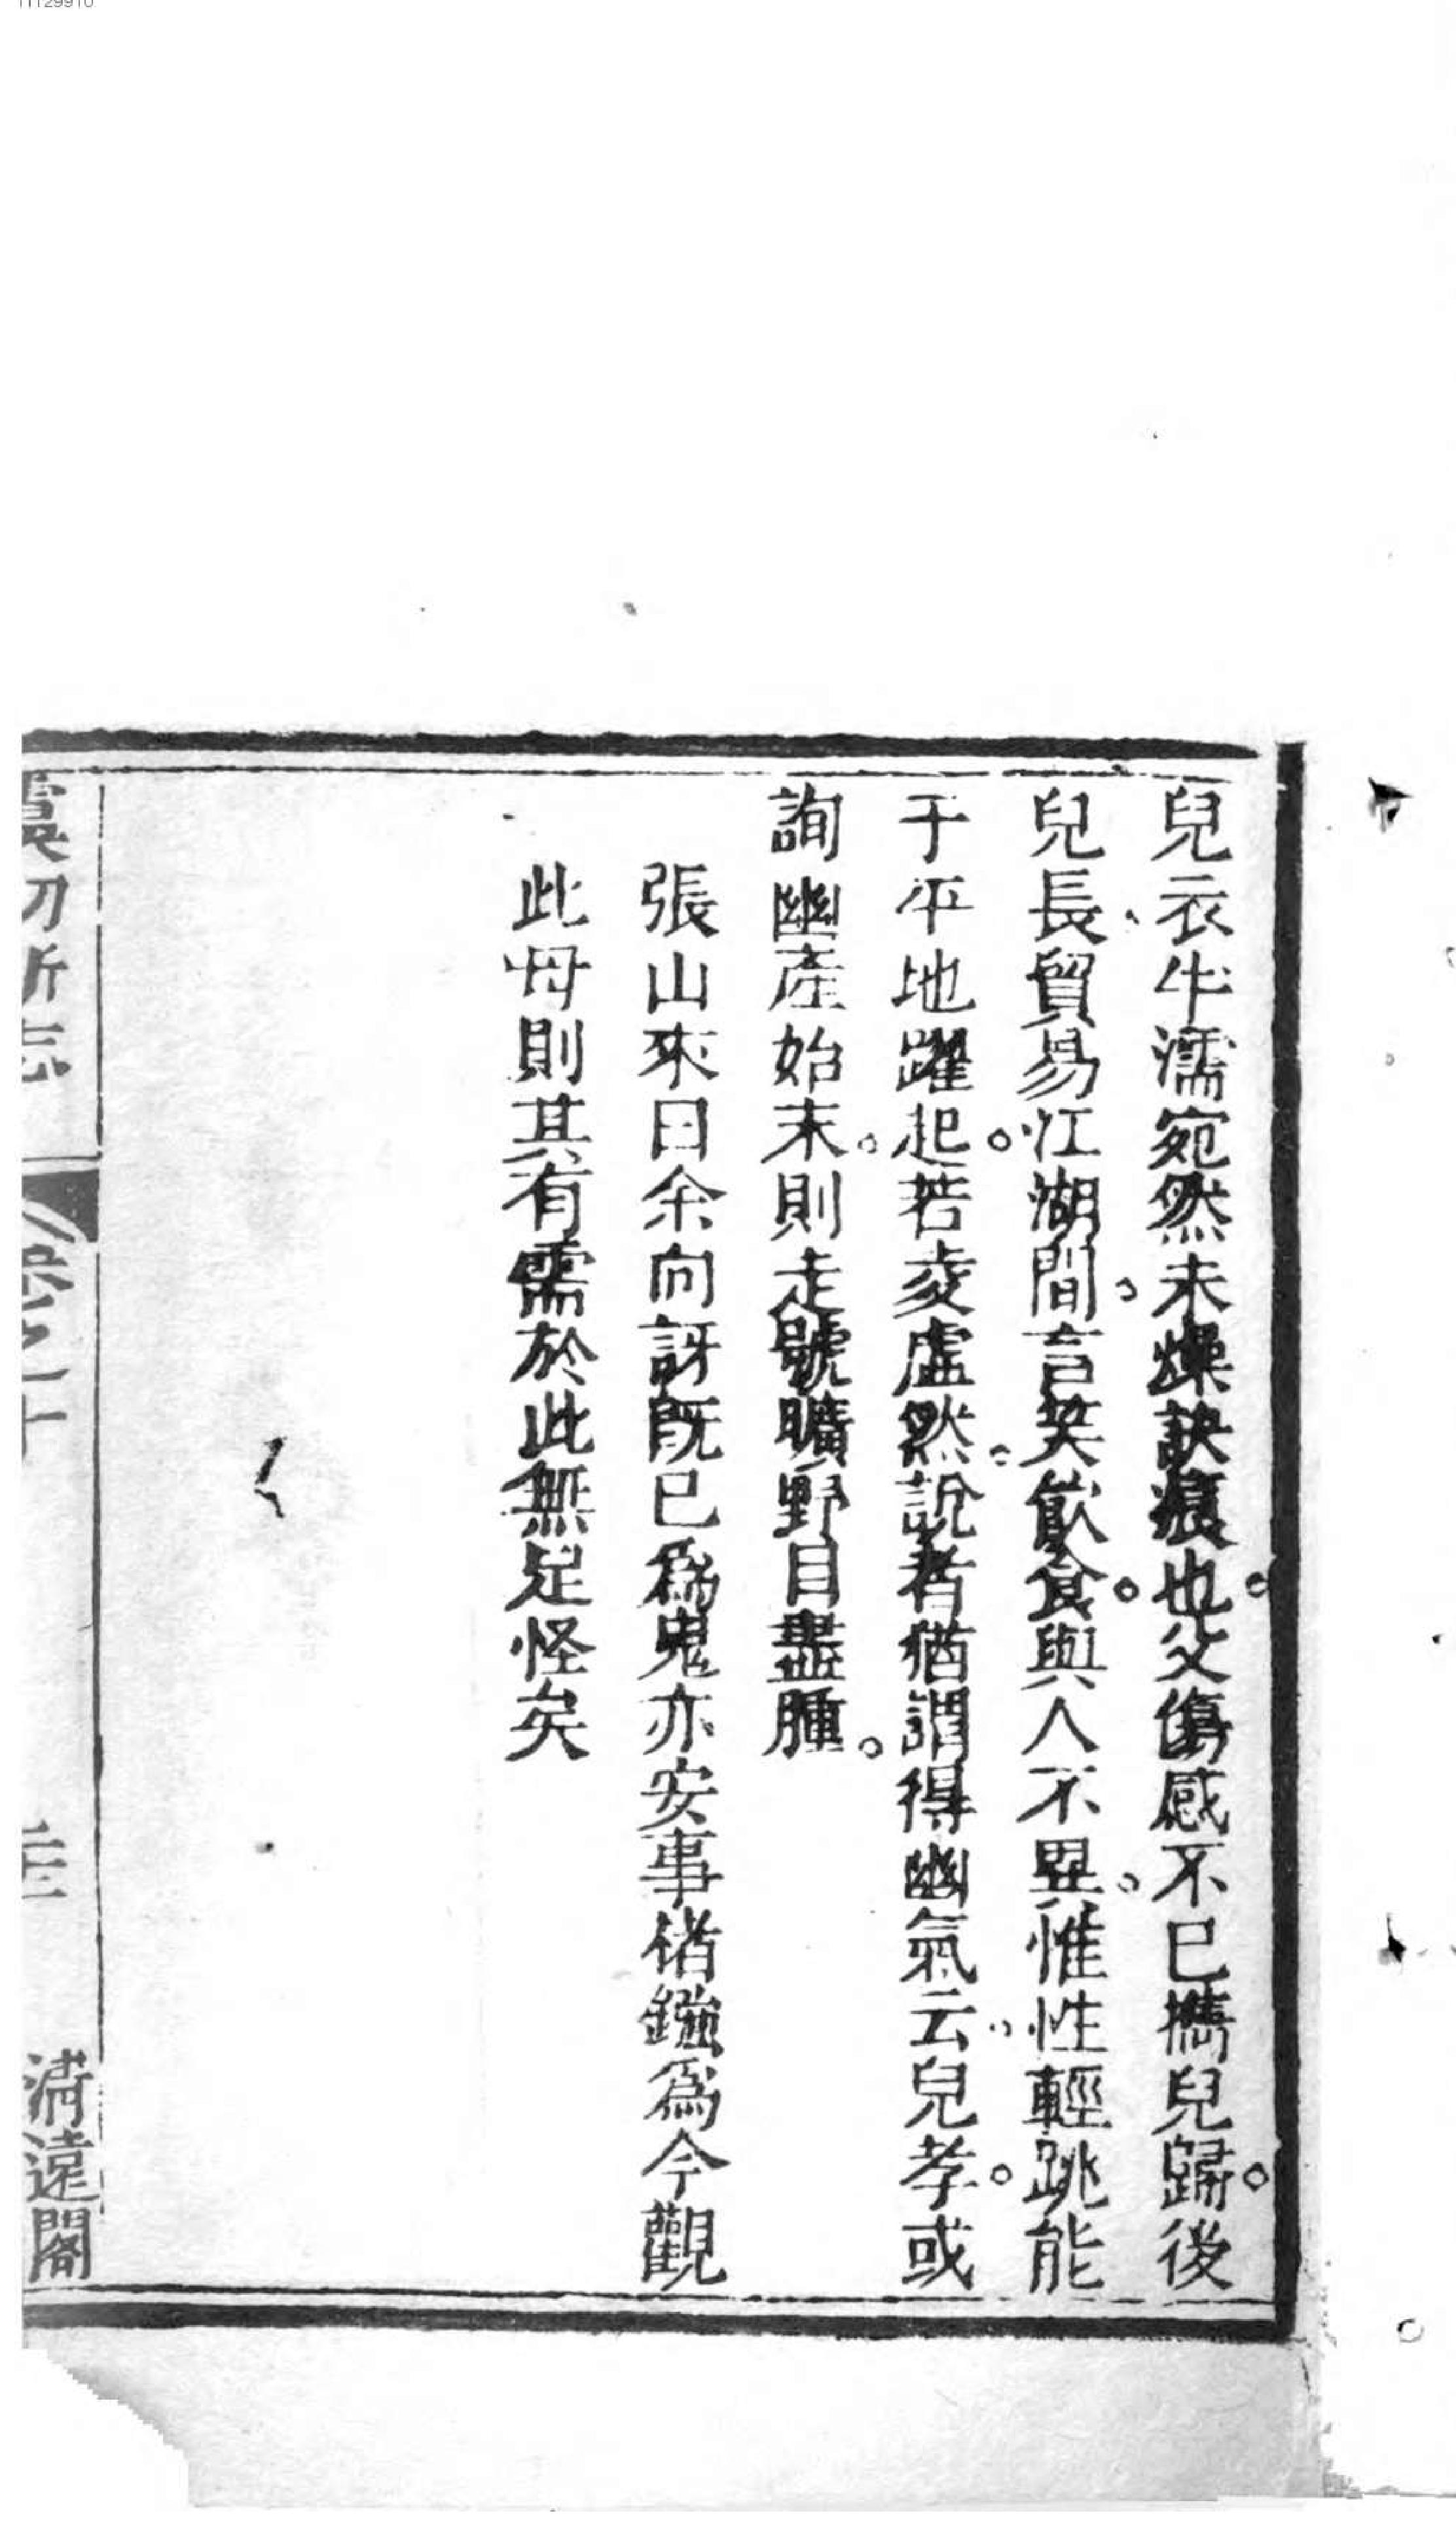 兒衣半濡宛然未燥訣痕也父傷感不已攜兒歸後
兒長貿易江湖間言笑飲食與人不異惟性輕跳能
于平地躍起若凌虛然說者猶謂得幽氣云兒孝或
詢幽產始末則走號曠野目盡腫
張山來曰余向訝旣已爲鬼亦安事楮鏹爲今觀
此母則其有需於此無足怪矣
虞初新志
卷之十
清遠閣